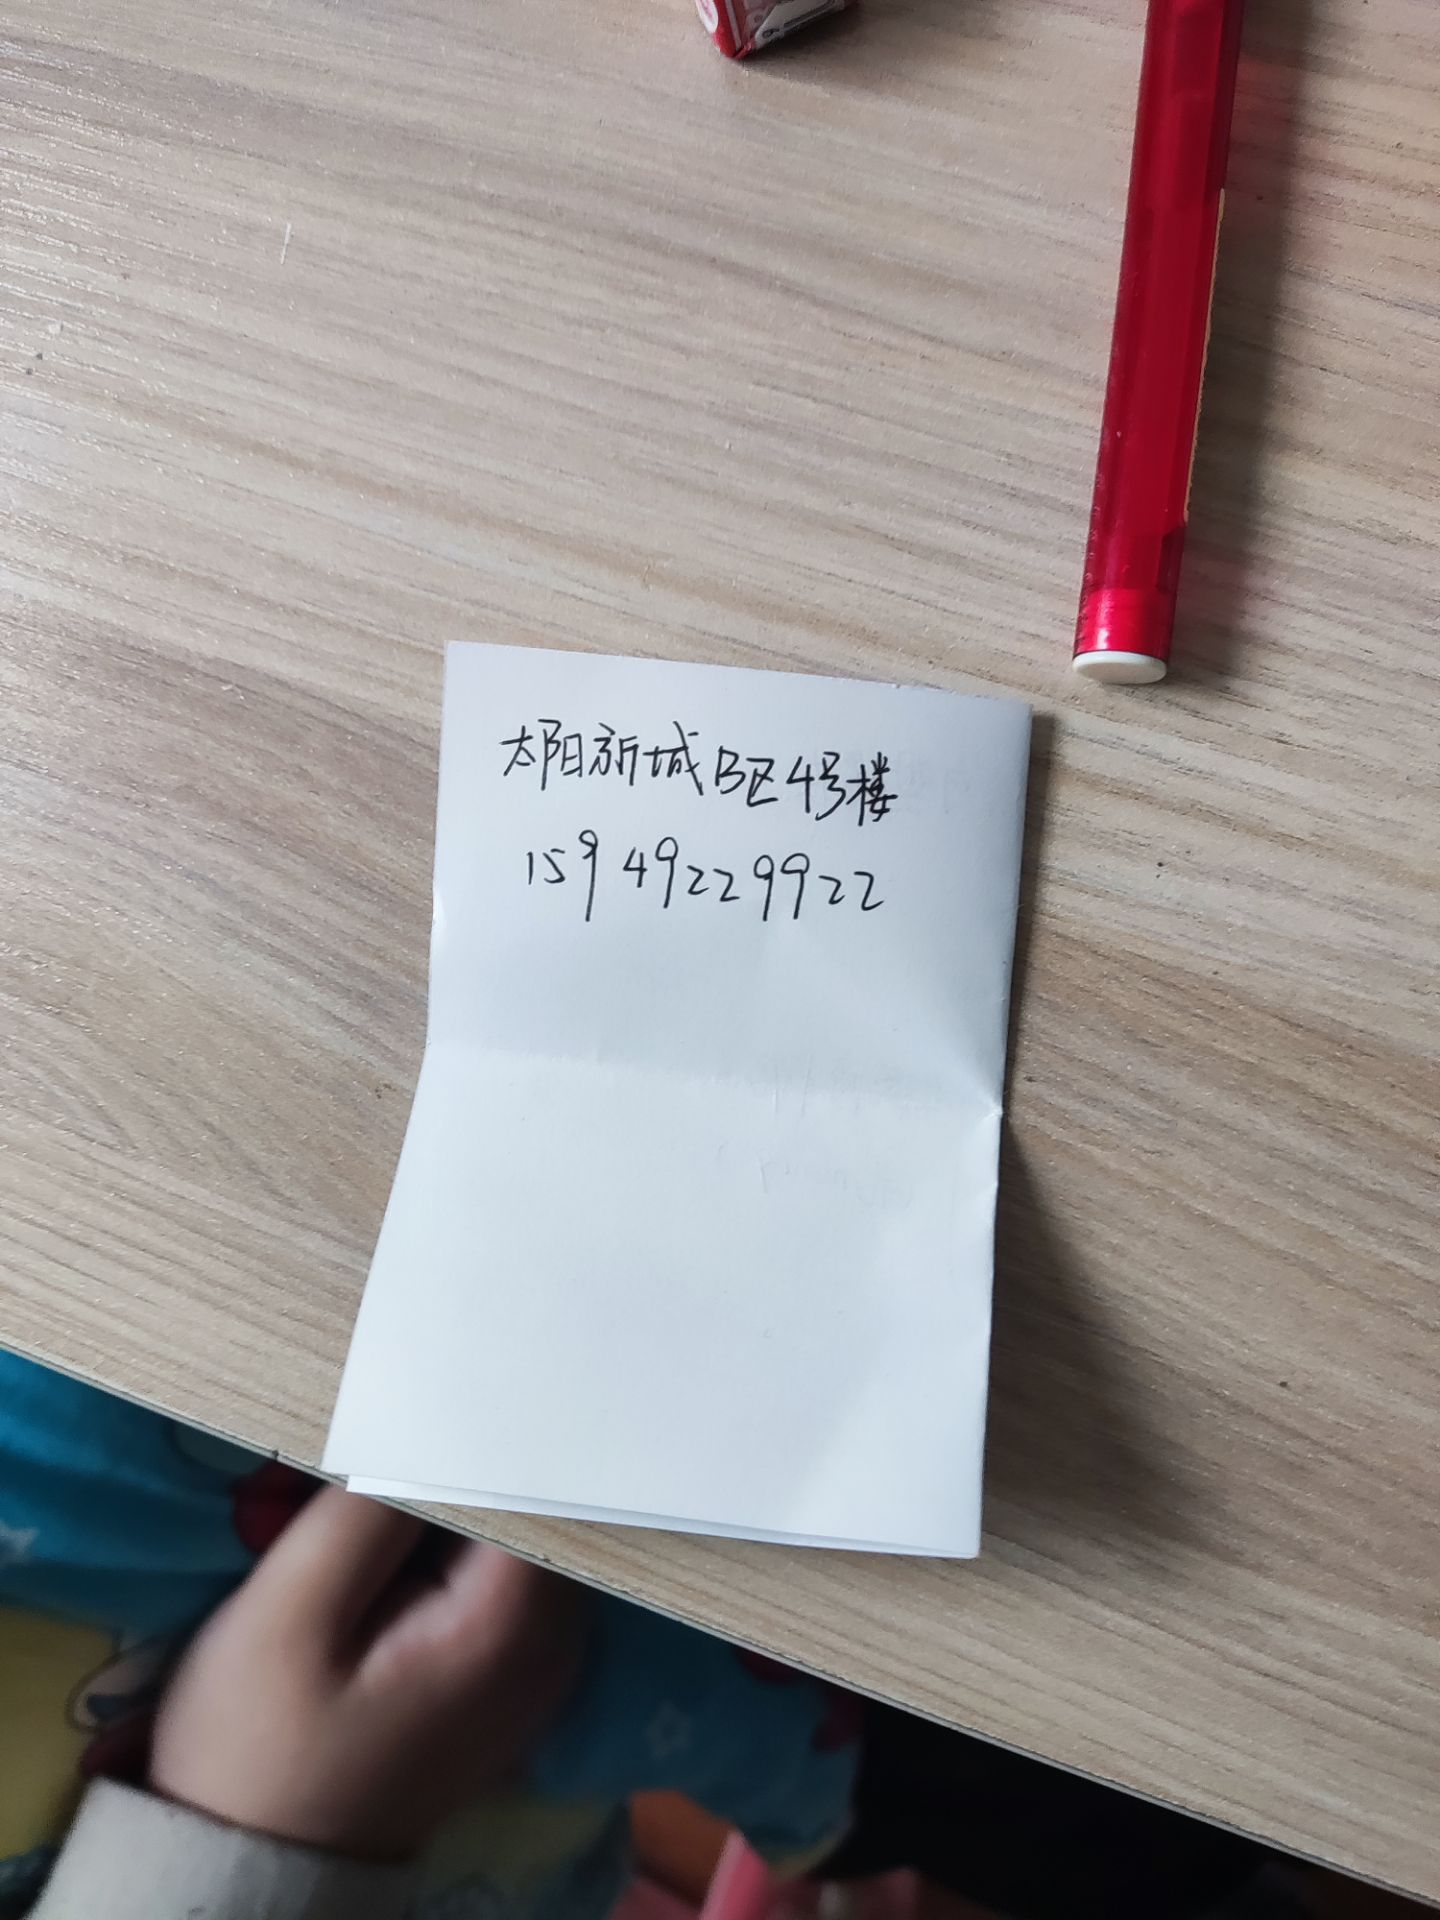 太阳新城B区4号楼
15949229922